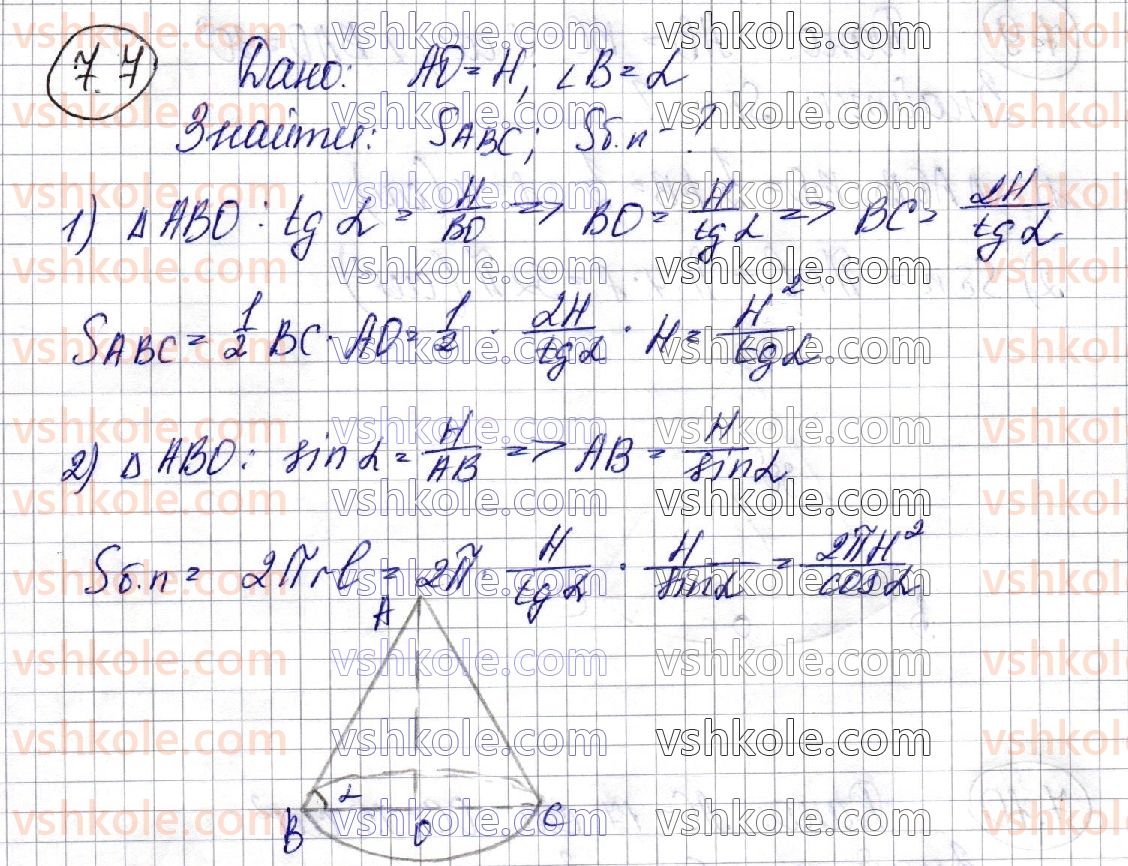 7.7
Дано: AO = H; ∠B = α
Знайти: S ABC; Sб.п - ?
1) △ABO: tg α = H/BO => BO = H/tg α => BC = 2H/tg α
S ABC = 1/2 BC · AO = 1/2 · 2H/tg α · H = H²/tg α
2) △ABO: sin α = H/AB => AB = H/sin α
Sб.п = 2πrl = 2π · H/tg α · H/sin α = 2πH²/cos α
A
α
B O C
vshkole.com